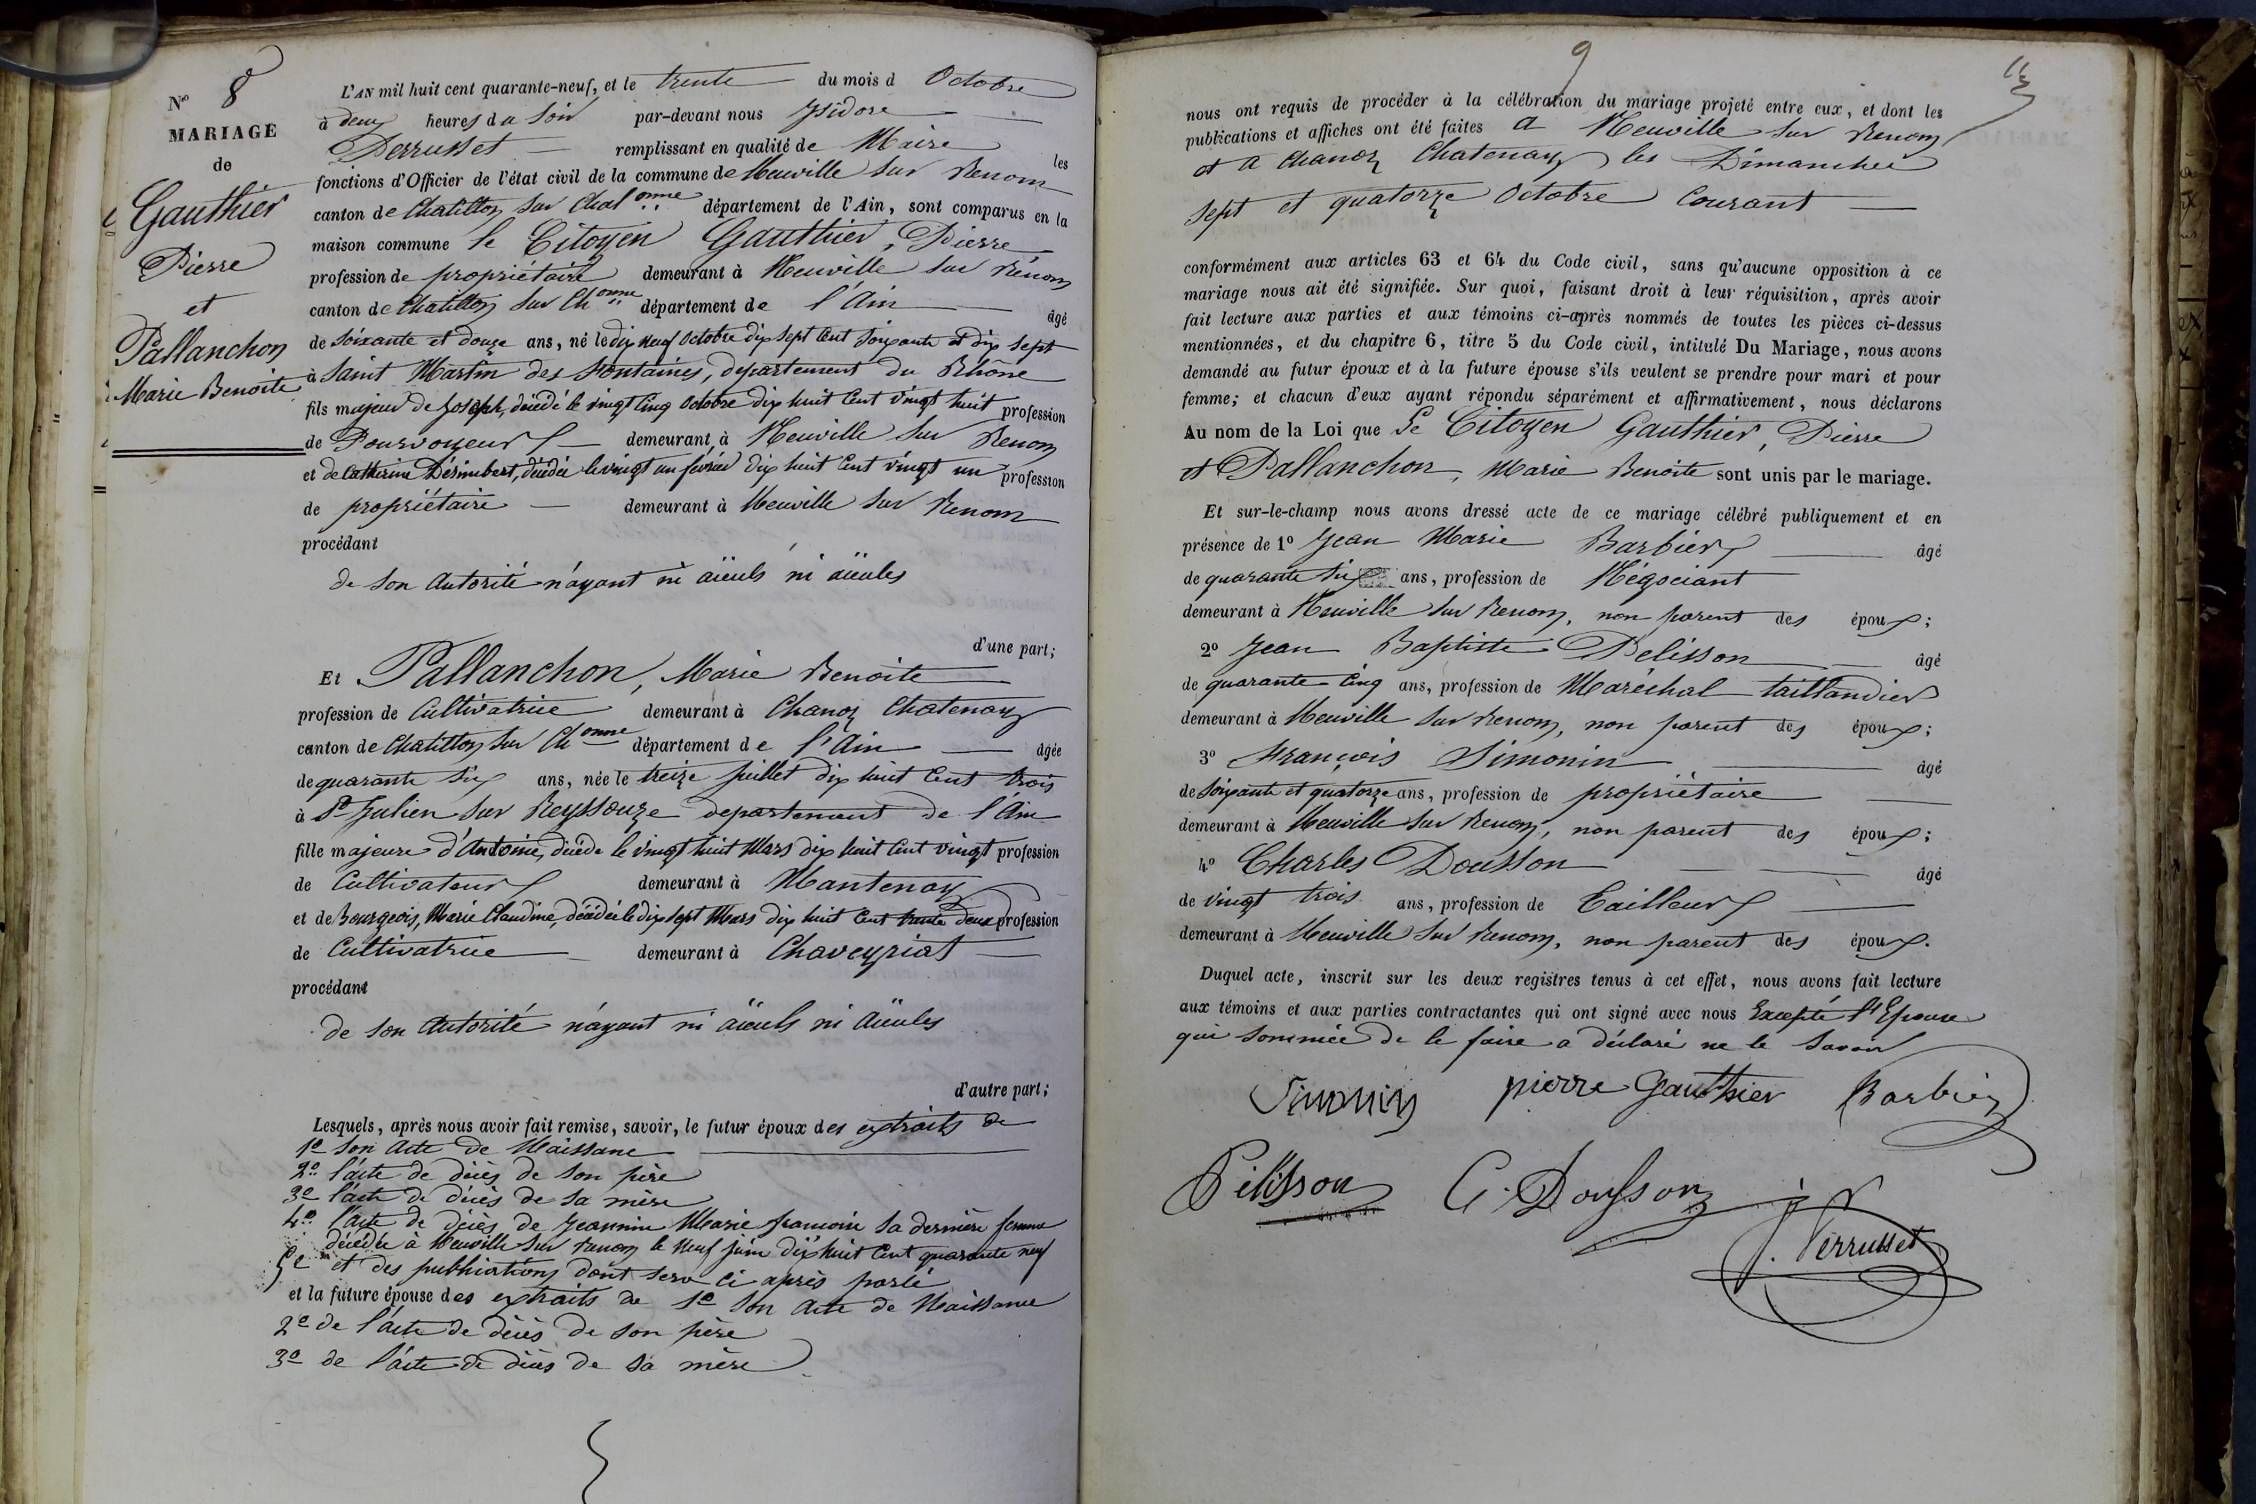 N° 8
MARIAGE
de
Gauthier
Pierre
et
Pallanchon
Marie Benoite
L'AN mil huit cent quarante-neuf, et le trente du mois d Octobre
à deux heures du Soir par-devant nous Ysidore
Perrusset remplissant en qualité de Maire les
fonctions d'Officier de l'état civil de la commune de Neuville sur Renom
canton de Chatillon sur Chalonne département de l'Ain, sont comparus en la
maison commune le Citoyen Gauthier, Pierre
profession de propriétaire demeurant à Neuville sur Rénom
canton de Chatillon sur Chonne département de l'Ain âgé
de soixante et douze ans, né le dix neuf Octobre dix sept Cent Soixante et dix sept
à Saint Martin des Fontaines, departement du Rhône
fils majeur de Joseph, décédé le vingt Cinq Octobre dix huit Cent vingt huit profession
de Pourvoyeur demeurant à Neuville sur Renom
et de Catherine Désimbert, décédée le vingt un février dix huit Cent vingt un profession
de propriétaire demeurant à Neuville sur Renom
procédant
de son Autorité n'ayant ni aïeuls ni aïeules
d'une part;
Et Pallanchon, Marie Benoite
profession de Cultivatrice demeurant à Chanoz Chatenay
canton de Chatillon sur Chonne département de l'Ain âgée
de quarante six ans, née le treize juillet dix huit Cent trois
à St Julien sur Reyssouze departement de l'Ain
fille majeure d'Antoine, décédé le vingt huit Mars dix huit Cent vingt profession
de Cultivateur demeurant à Mantenay
et de Bourgeois, Marie Claudine, décédée le dix sept Mars dix huit Cent trente deux profession
de Cultivatrice demeurant à Chaveyriat
procédant
de son Autorité n'ayant ni aïeuls ni Aïeules
d'autre part;
Lesquels, après nous avoir fait remise, savoir, le futur époux des extraits de
1° son Acte de Naissane
2° l'acte de décès de son père
3° l'acte de décès de sa mère
4° l'acte de décès de Jeannin Marie francoise sa dernière femme
décédée à Neuville sur Renom le neuf juin dix huit Cent quarante neuf
5° et des publications dont sera ci après parlé
et la future épouse des extraits de 1° son Acte de Naissance
2° de l'acte de décès de son père
3° de l'acte de décès de sa mère
9
nous ont requis de procéder à la célébration du mariage projeté entre eux, et dont les
publications et affiches ont été faites A Neuville sur Renom
et A Chanoz Chatenay les Dimanches
sept et quatorze Octobre Courant
conformément aux articles 63 et 64 du Code civil, sans qu'aucune opposition à ce
mariage nous ait été signifiée. Sur quoi, faisant droit à leur réquisition, après avoir
fait lecture aux parties et aux témoins ci-après nommés de toutes les pièces ci-dessus
mentionnées, et du chapitre 6, titre 5 du Code civil, intitulé Du Mariage, nous avons
demandé au futur époux et à la future épouse s'ils veulent se prendre pour mari et pour
femme; et chacun d'eux ayant répondu séparément et affirmativement, nous déclarons
Au nom de la Loi que Le Citoyen Gauthier, Pierre
et Pallanchon, Marie Benoite sont unis par le mariage.
Et sur-le-champ nous avons dressé acte de ce mariage célébré publiquement et en
présence de 1° Jean Marie Barbier âgé
de quarante six ans, profession de Négociant
demeurant à Neuville sur Renom, non parent des époux;
2° Jean Baptiste Pelisson âgé
de quarante Cinq ans, profession de Maréchal taillandier
demeurant à Neuville sur Renom, non parent des époux;
3° François Simonin âgé
de soixante et quatorze ans, profession de propriétaire
demeurant à Neuville sur Renom, non parent des époux;
4° Charles Dousson âgé
de vingt trois ans, profession de Tailleur
demeurant à Neuville sur Renom, non parent des époux.
Duquel acte, inscrit sur les deux registres tenus à cet effet, nous avons fait lecture
aux témoins et aux parties contractantes qui ont signé avec nous Excepté l'Epouse
qui sommée de le faire a déclaré ne le Savoir
Simonin pierre Gauthier Barbier
Pélisson C. Dousson
J. Perrusset